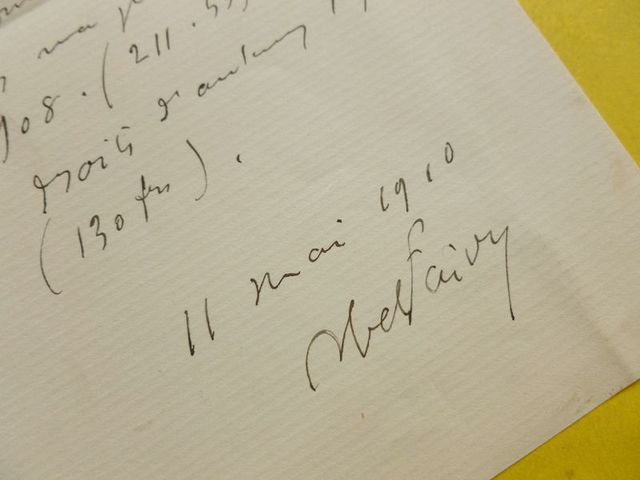 ma
908. (211.55
droits d'auteur
(130 frs).
11 mai 1910
Abel Faivre